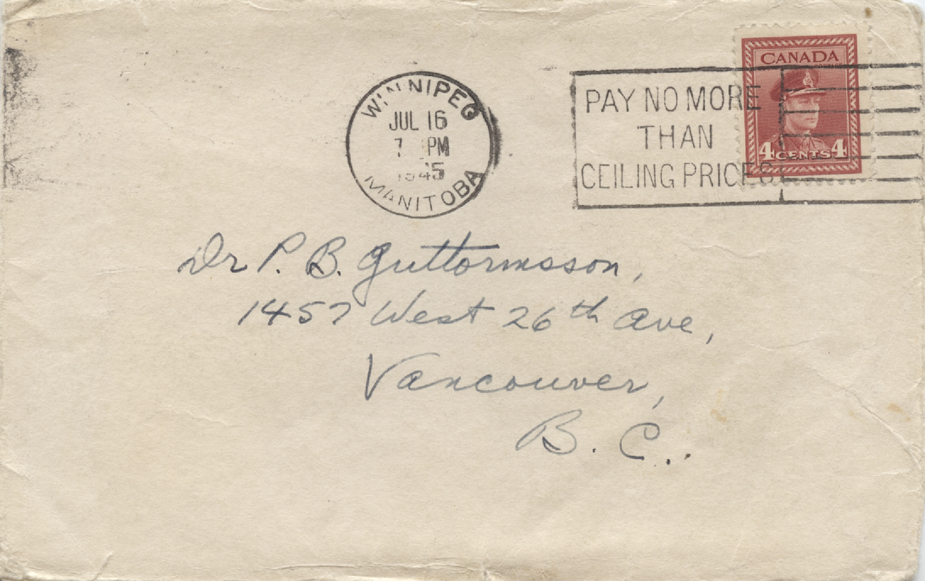 WINNIPEG
JUL 16
7 PM
1945
MANITOBA
PAY NO MORE
THAN
CEILING PRICES
CANADA
4 CENTS 4
Dr P. B. Guttormsson,
1457 West 26th Ave,
Vancouver,
B. C..